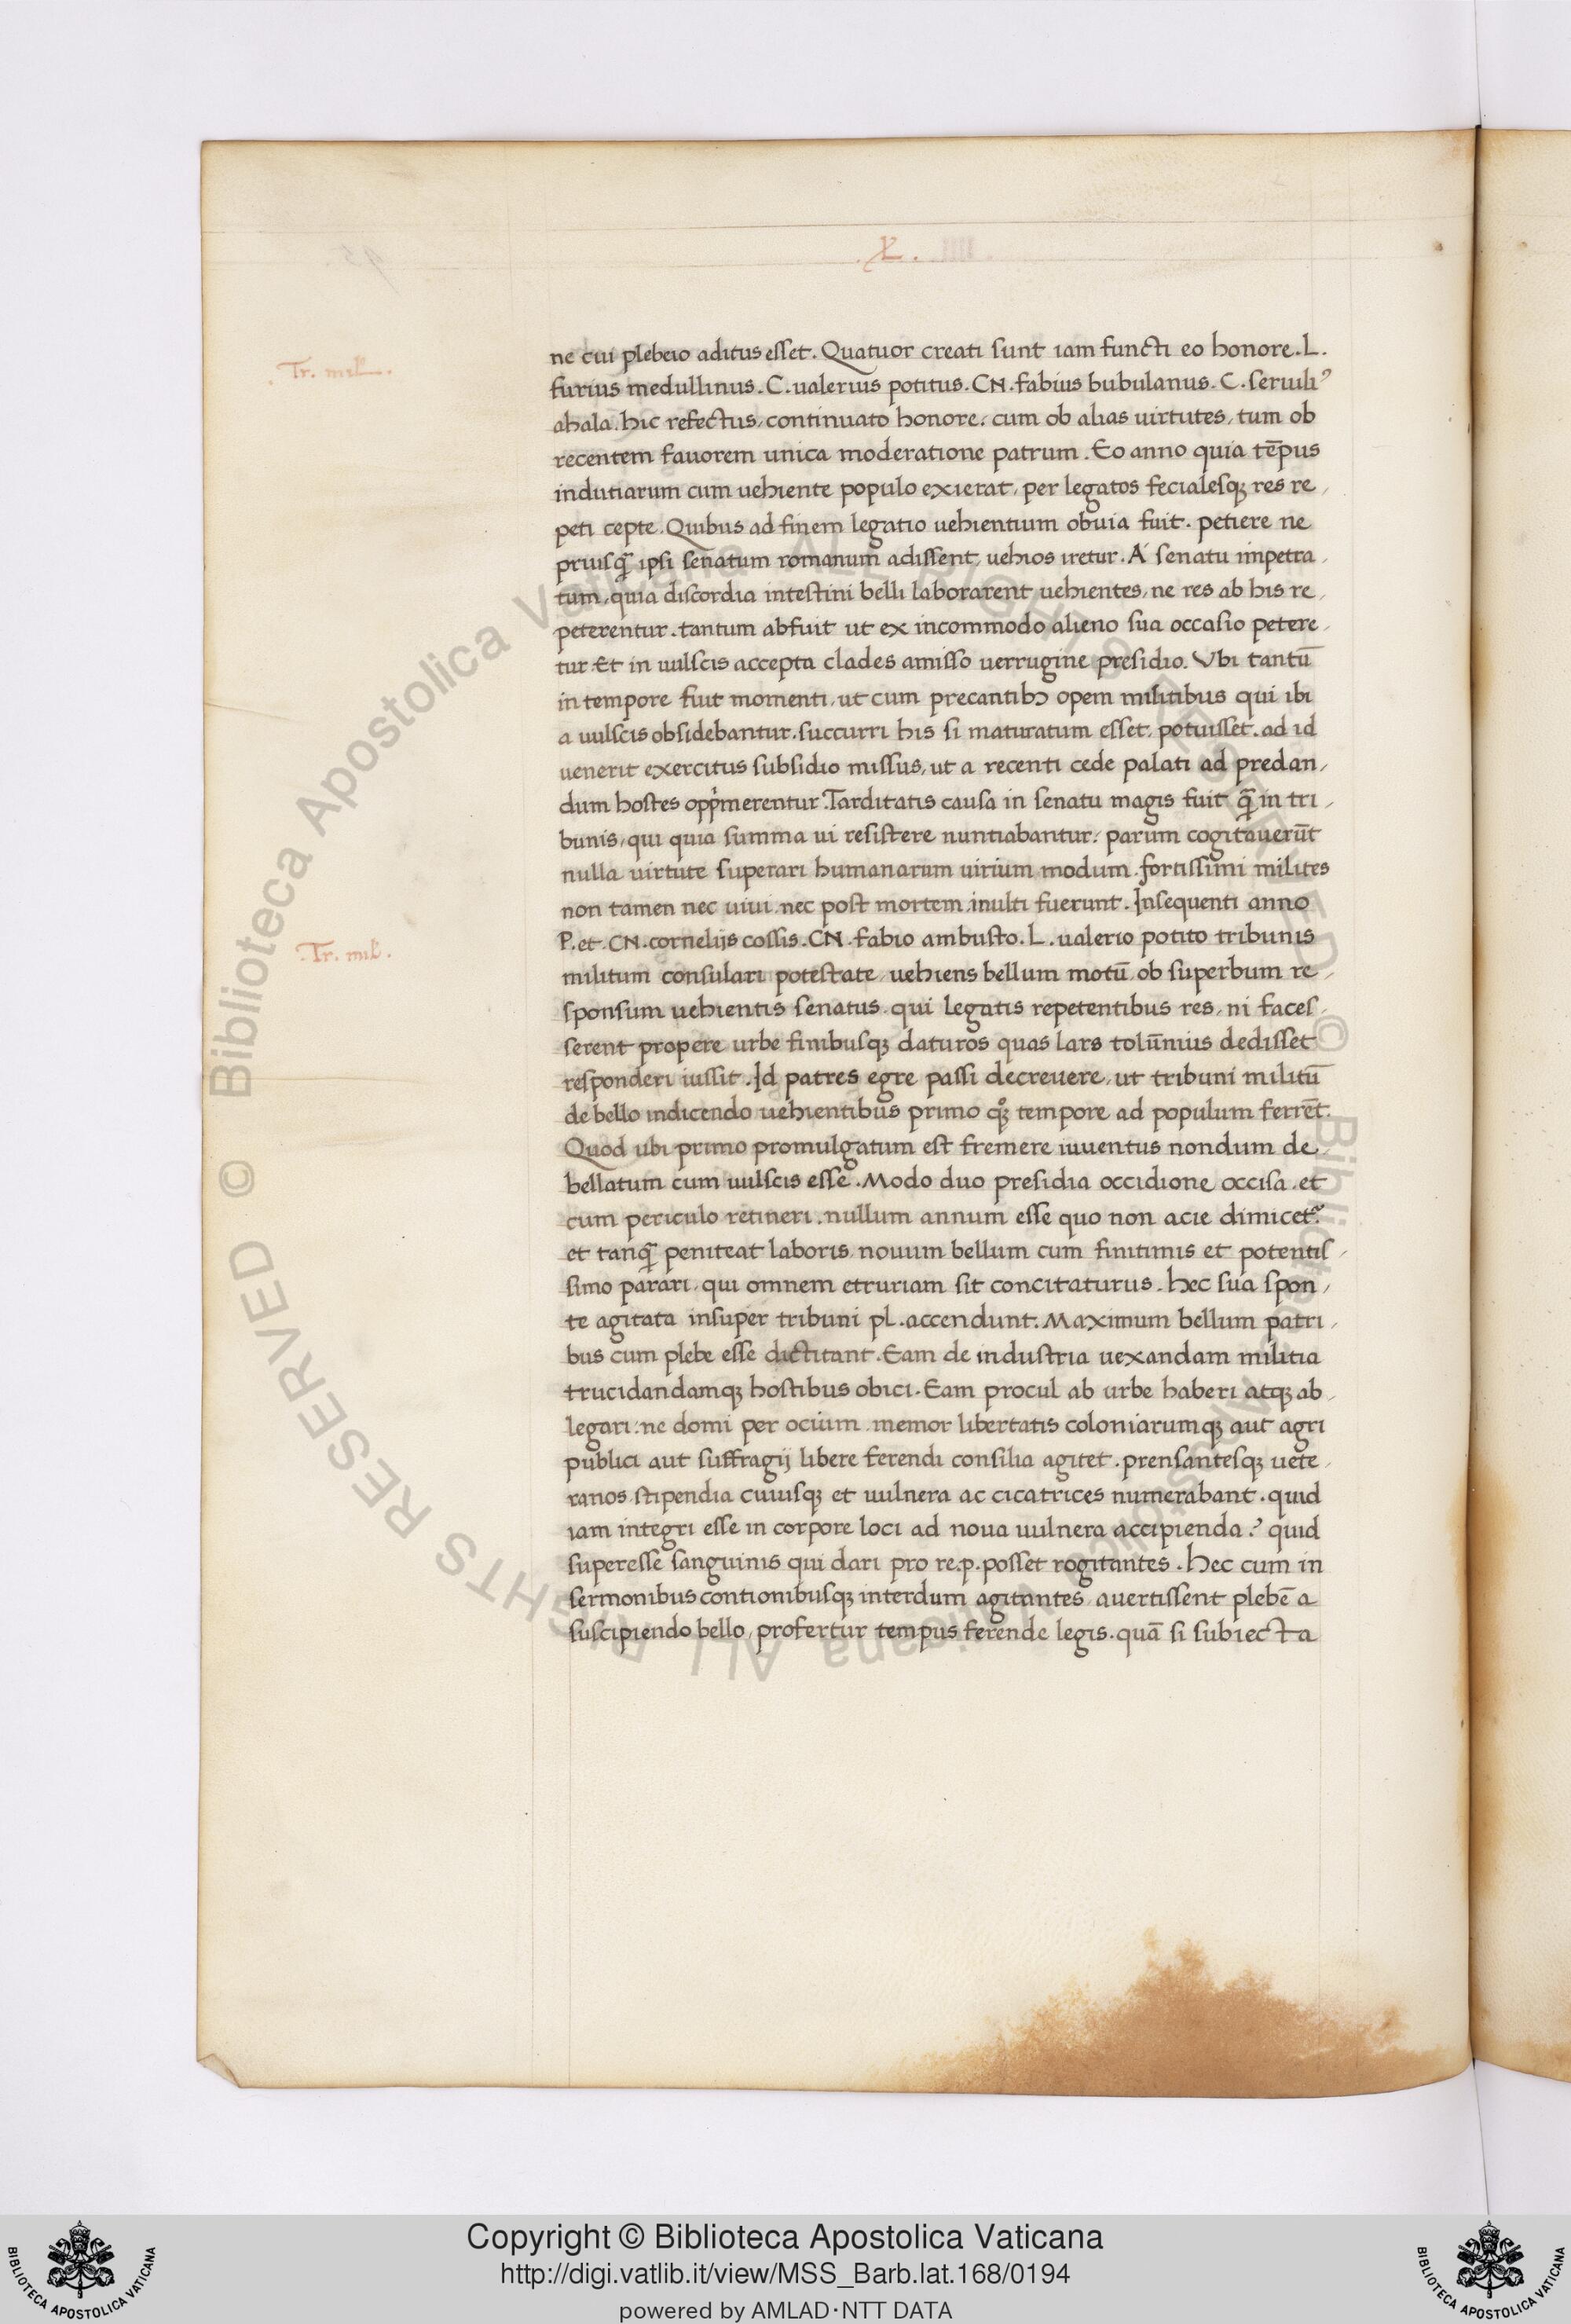 .L.
.Tr. mil.
ne cui plebeio aditus esset. Quatuor creati sunt iam functi eo honore. L.
furius medullinus. C. ualerius potitus. CN. fabius bubulanus. C. seruiliꝰ
ahala. hic refectus, continuato honore: cum ob alias uirtutes, tum ob
recentem fauorem unica moderatione patrum. Eo anno quia tēpus
indutiarum cum uehiente populo exierat, per legatos fecialesqꝫ res re,
peti cepte. Quibus ad finem legatio uehientium obuia fuit. petiere ne
priusqꝫ̄ ipsi senatum romanum adissent, uehios iretur. A senatu impetra,
tum, quia discordia intestini belli laborarent uehientes, ne res ab his re,
peterentur. tantum abfuit ut ex incommodo alieno sua occasio petere,
tur. Et in uulscis accepta clades amisso uerrugine presidio. Vbi tantū
in tempore fuit momenti, ut cum precantibꝫ opem militibus qui ibi
a uulscis obsidebantur. succurri his si maturatum esset, potuisset. ad id
uenerit exercitus subsidio missus, ut a recenti cede palati ad predan,
dum hostes opp̍merentur. Tarditatis causa in senatu magis fuit q̄ in tri,
bunis, qui quia summa ui resistere nuntiabantur: parum cogitauerūt
nulla uirtute superari humanarum uirium modum. fortissimi milites
non tamen nec uiui nec post mortem inulti fuerunt. Insequenti anno
.Tr. mil.
P. et. CN. cornelijs cossis. CN. fabio ambusto. L. ualerio potito tribunis
militum consulari potestate, uehiens bellum motū ob superbum re,
sponsum uehientis senatus qui legatis repetentibus res, ni faces,
serent propere urbe finibusqꝫ daturos quas lars tolūnius dedisset
responderi iussit. Id patres egre passi decreuere, ut tribuni militū
de bello indicendo uehientibus primo qꝫ tempore ad populum ferrēt.
Quod ubi primo promulgatum est fremere iuuentus nondum de,
bellatum cum uulscis esse. Modo duo presidia occidione occisa. et
cum periculo retineri. nullum annum esse quo non acie dimicet᷑.
et tanq̄ peniteat laboris nouum bellum cum finitimis et potentis,
simo parari, qui omnem etruriam sit concitaturus. hec sua spon,
te agitata insuper tribuni pl. accendunt. Maximum bellum patri,
bus cum plebe esse dictitant. Eam de industria uexandam militia
trucidandamqꝫ hostibus obici. Eam procul ab urbe haberi atqꝫ ab,
legari: ne domi per ocium memor libertatis coloniarumqꝫ aut agri
publici aut suffragij libere ferendi consilia agitet. prensantesqꝫ uete,
ranos stipendia cuiusqꝫ et uulnera ac cicatrices numerabant. quid
iam integri esse in corpore loci ad noua uulnera accipienda? quid
superesse sanguinis qui dari pro re.p. posset rogitantes. hec cum in
sermonibus contionibusqꝫ interdum agitantes auertissent plebē a
suscipiendo bello, profertur tempus ferende legis. quā si subiecta
© Biblioteca Apostolica Vaticana ALL RIGHTS RESERVED © Biblioteca Apostolica Vaticana ALL RIGHTS RESERVED
Copyright © Biblioteca Apostolica Vaticana
http://digi.vatlib.it/view/MSS_Barb.lat.168/0194
powered by AMLAD·NTT DATA
BIBLIOTECA APOSTOLICA VATICANA
BIBLIOTECA APOSTOLICA VATICANA